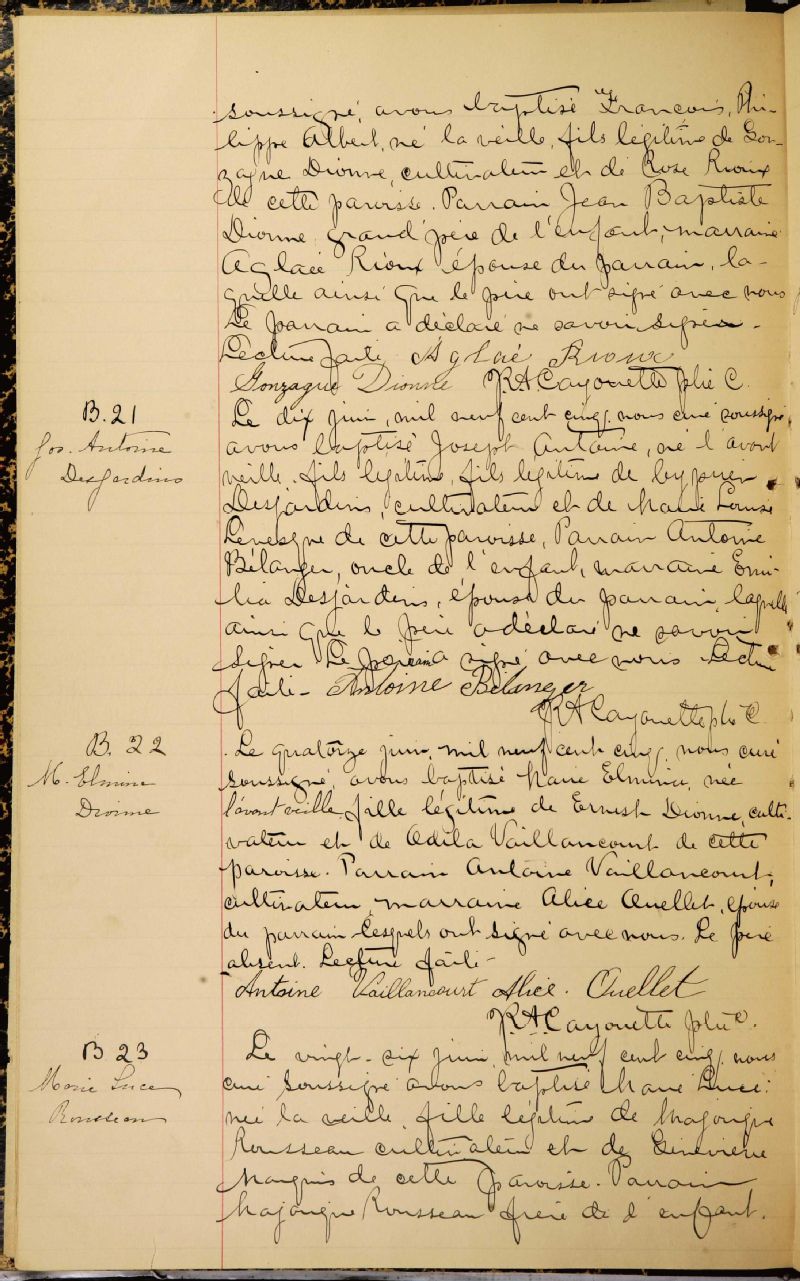 soussigné, avons baptisé François, Phi-
lippe Albert, né la veille, fils légitime de Gon-
zague Dionne, cultivateur et de Rose Rioux
de cette paroisse. Parrain Jean Baptiste
Dionne grand'père de l'enfant, marraine
Aglaée Rioux épouse du parrain, la-
quelle ainsi que le père ont signé avec nous
Le parrain a déclaré ne savoir signer -
Lecture faite Aglaé Rioux
Gonzague Dionne Ptre C.
B. 21
Jos. Antoine
Desjardins
Le dix juin, mil neuf cent cinq, nous curé soussigné,
avons baptisé Joseph Antoine, né l'avant
veille, fils légitime, fils légitime de Cyprien
Desjardins, cultivateur et de Marie Louise
Levesque de cette paroisse, Parrain Antoine
Bélanger, oncle de l'enfant, marraine Emi-
lia Desjardins, épouse du parrain, laquelle
ainsi que le père a déclaré ne savoir
signer Le parrain a signé avec nous Lecture
faite - Antoine Bélanger
J. R. A. Cayouette ptre C.
B. 22
M. Elmina
Dionne
Le quatorze juin, mil neuf cent cinq, nous curé
soussigné, avons baptisé Marie Elmina, née
l'avant veille, fille légitime de Ernest Dionne, culti-
vateur et de Adila Vaillancourt de cette
paroisse. Parrain Antoine Vaillancourt,
cultivateur, marraine Alice Ouellet, épouse
du parrain lesquels ont signé avec nous. Le père
absent. Lecture faite -
Antoine Vaillancourt Alice. Ouellet
J. R. A. Cayouette ptre C.
B 23
Marie Luce
Rousseau
Le vingt-six juin, mil neuf cent cinq, nous
curé soussigné avons baptisé Marie Luce,
née la veille, fille légitime de Majorique
Rousseau cultivateur et de Geneviève
Marquis de cette paroisse. Parrain
Majorique Rousseau frère de l'enfant.